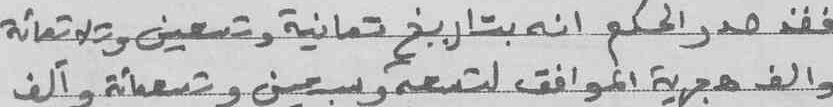 فقد صدر الحكم انه بتاريخ ثمانية وتسعين وثلاثمائة
والف هجرية الموافق لتسعة وسبعين وتسعمائة وألف